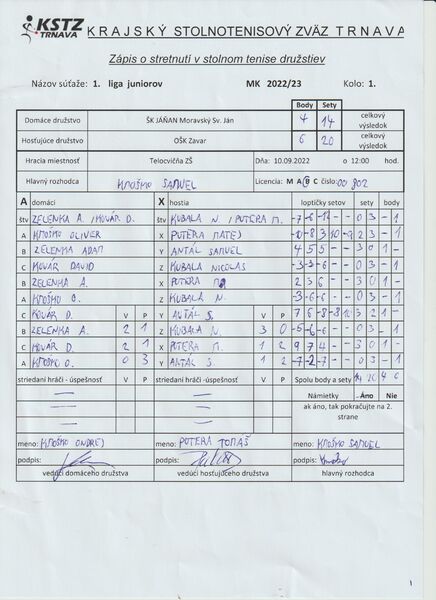 KSTZ TRNAVA KRAJSKÝ STOLNOTENISOVÝ ZVÄZ TRNAVA
Zápis o stretnutí v stolnom tenise družstiev
Názov súťaže: 1. liga juniorov MK 2022/23 Kolo: 1.
Body Sety
Domáce družstvo ŠK JÁŇAN Moravský Sv. Ján 4 14 celkový výsledok
Hosťujúce družstvo OŠK Zavar 6 20 celkový výsledok
Hracia miestnosť Telocvičňa ZŠ Dňa: 10.09.2022 o 12:00 hod.
Hlavný rozhodca KMOŠKO SAMUEL Licencia: M A B C číslo: 00 802
A domáci X hostia loptičky setov sety body
štv ZELENKA A. / KOVÁR D. štv KUBALA N. / PUTERA M. 0 3 - 1
A KMOŠKO OLIVER X PUTERA MATEJ 2 3 - 1
B ZELENKA ADAM Y ANTÁL SAMUEL 4 5 5 - - 3 0 1 -
C KOVÁR DAVID Z KUBALA NICOLAS -3 -3 -6 - - 0 3 - 1
B ZELENKA A. X PUTERA M. 2 3 6 - - 3 0 1 -
A KMOŠKO O. Z KUBALA N. -3 -6 -6 - - 0 3 - 1
C KOVÁR D. Y ANTÁL S. 7 6 -8 -8 3 2 1 -
B ZELENKA A. 2 1 Z KUBALA N. 3 0 -5 -6 -6 - - 0 3 - 1
C KOVÁR D. 2 1 X PUTERA M. 1 2 9 7 4 - - 3 0 1 -
A KMOŠKO O. 0 3 Y ANTÁL S. 1 2 -7 -2 -7 - - 0 3 - 1
striedaní hráči - úspešnosť V P striedaní hráči -úspešnosť V P Spolu body a sety 14 20 4 6
Námietky Áno Nie
ak áno, tak pokračujte na 2. strane
meno: KMOŠKO ONDREJ meno: PUTERA TOMÁŠ meno: KMOŠKO SAMUEL
podpis: podpis: podpis:
vedúci domáceho družstva vedúci hosťujúceho družstva hlavný rozhodca
1